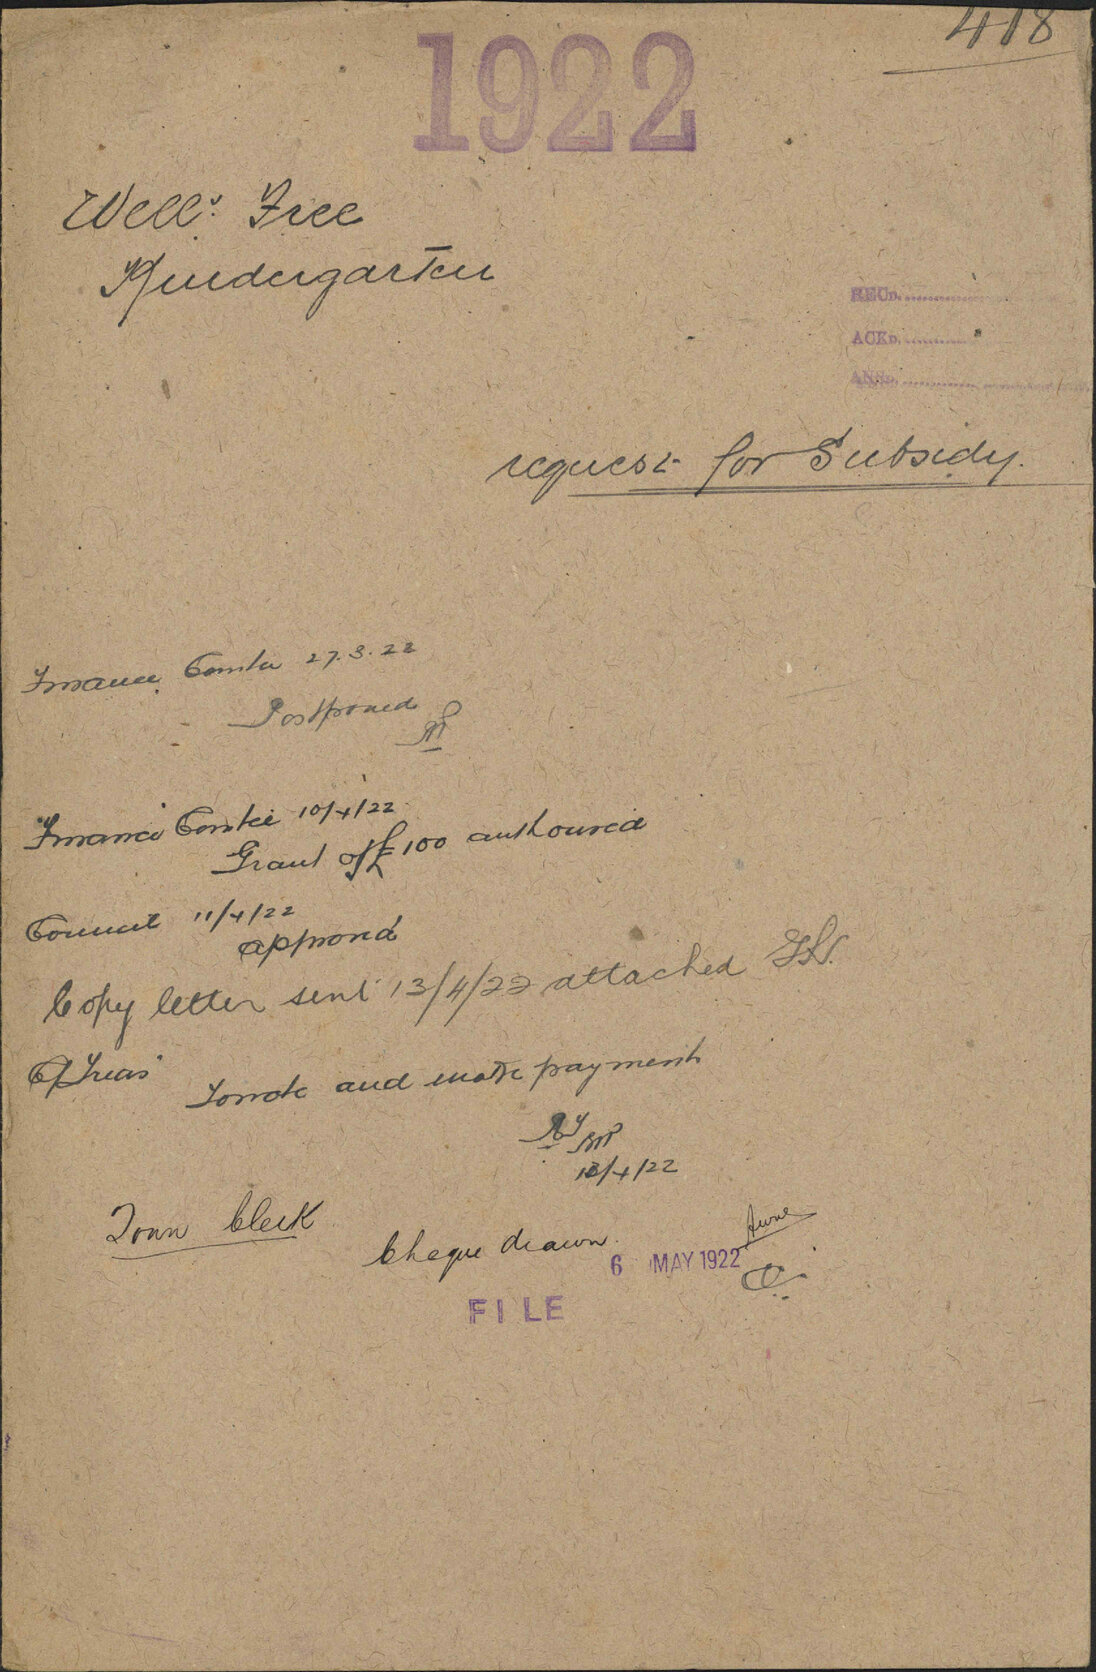 418
1922
Well: Free
Kindergarten
RECD.
ACKD.
ANSD.
request for Subsidy.
Finance Comtee 27.3.22
Postponed
Finance Comtee 10/4/22
Grant of £100 authorised
Council 11/4/22
approved
Copy letter sent 13/4/22 attached
C/Treas
To note and make payment
13/4/22
Town Clerk
Cheque drawn 6 MAY 1922
FILE